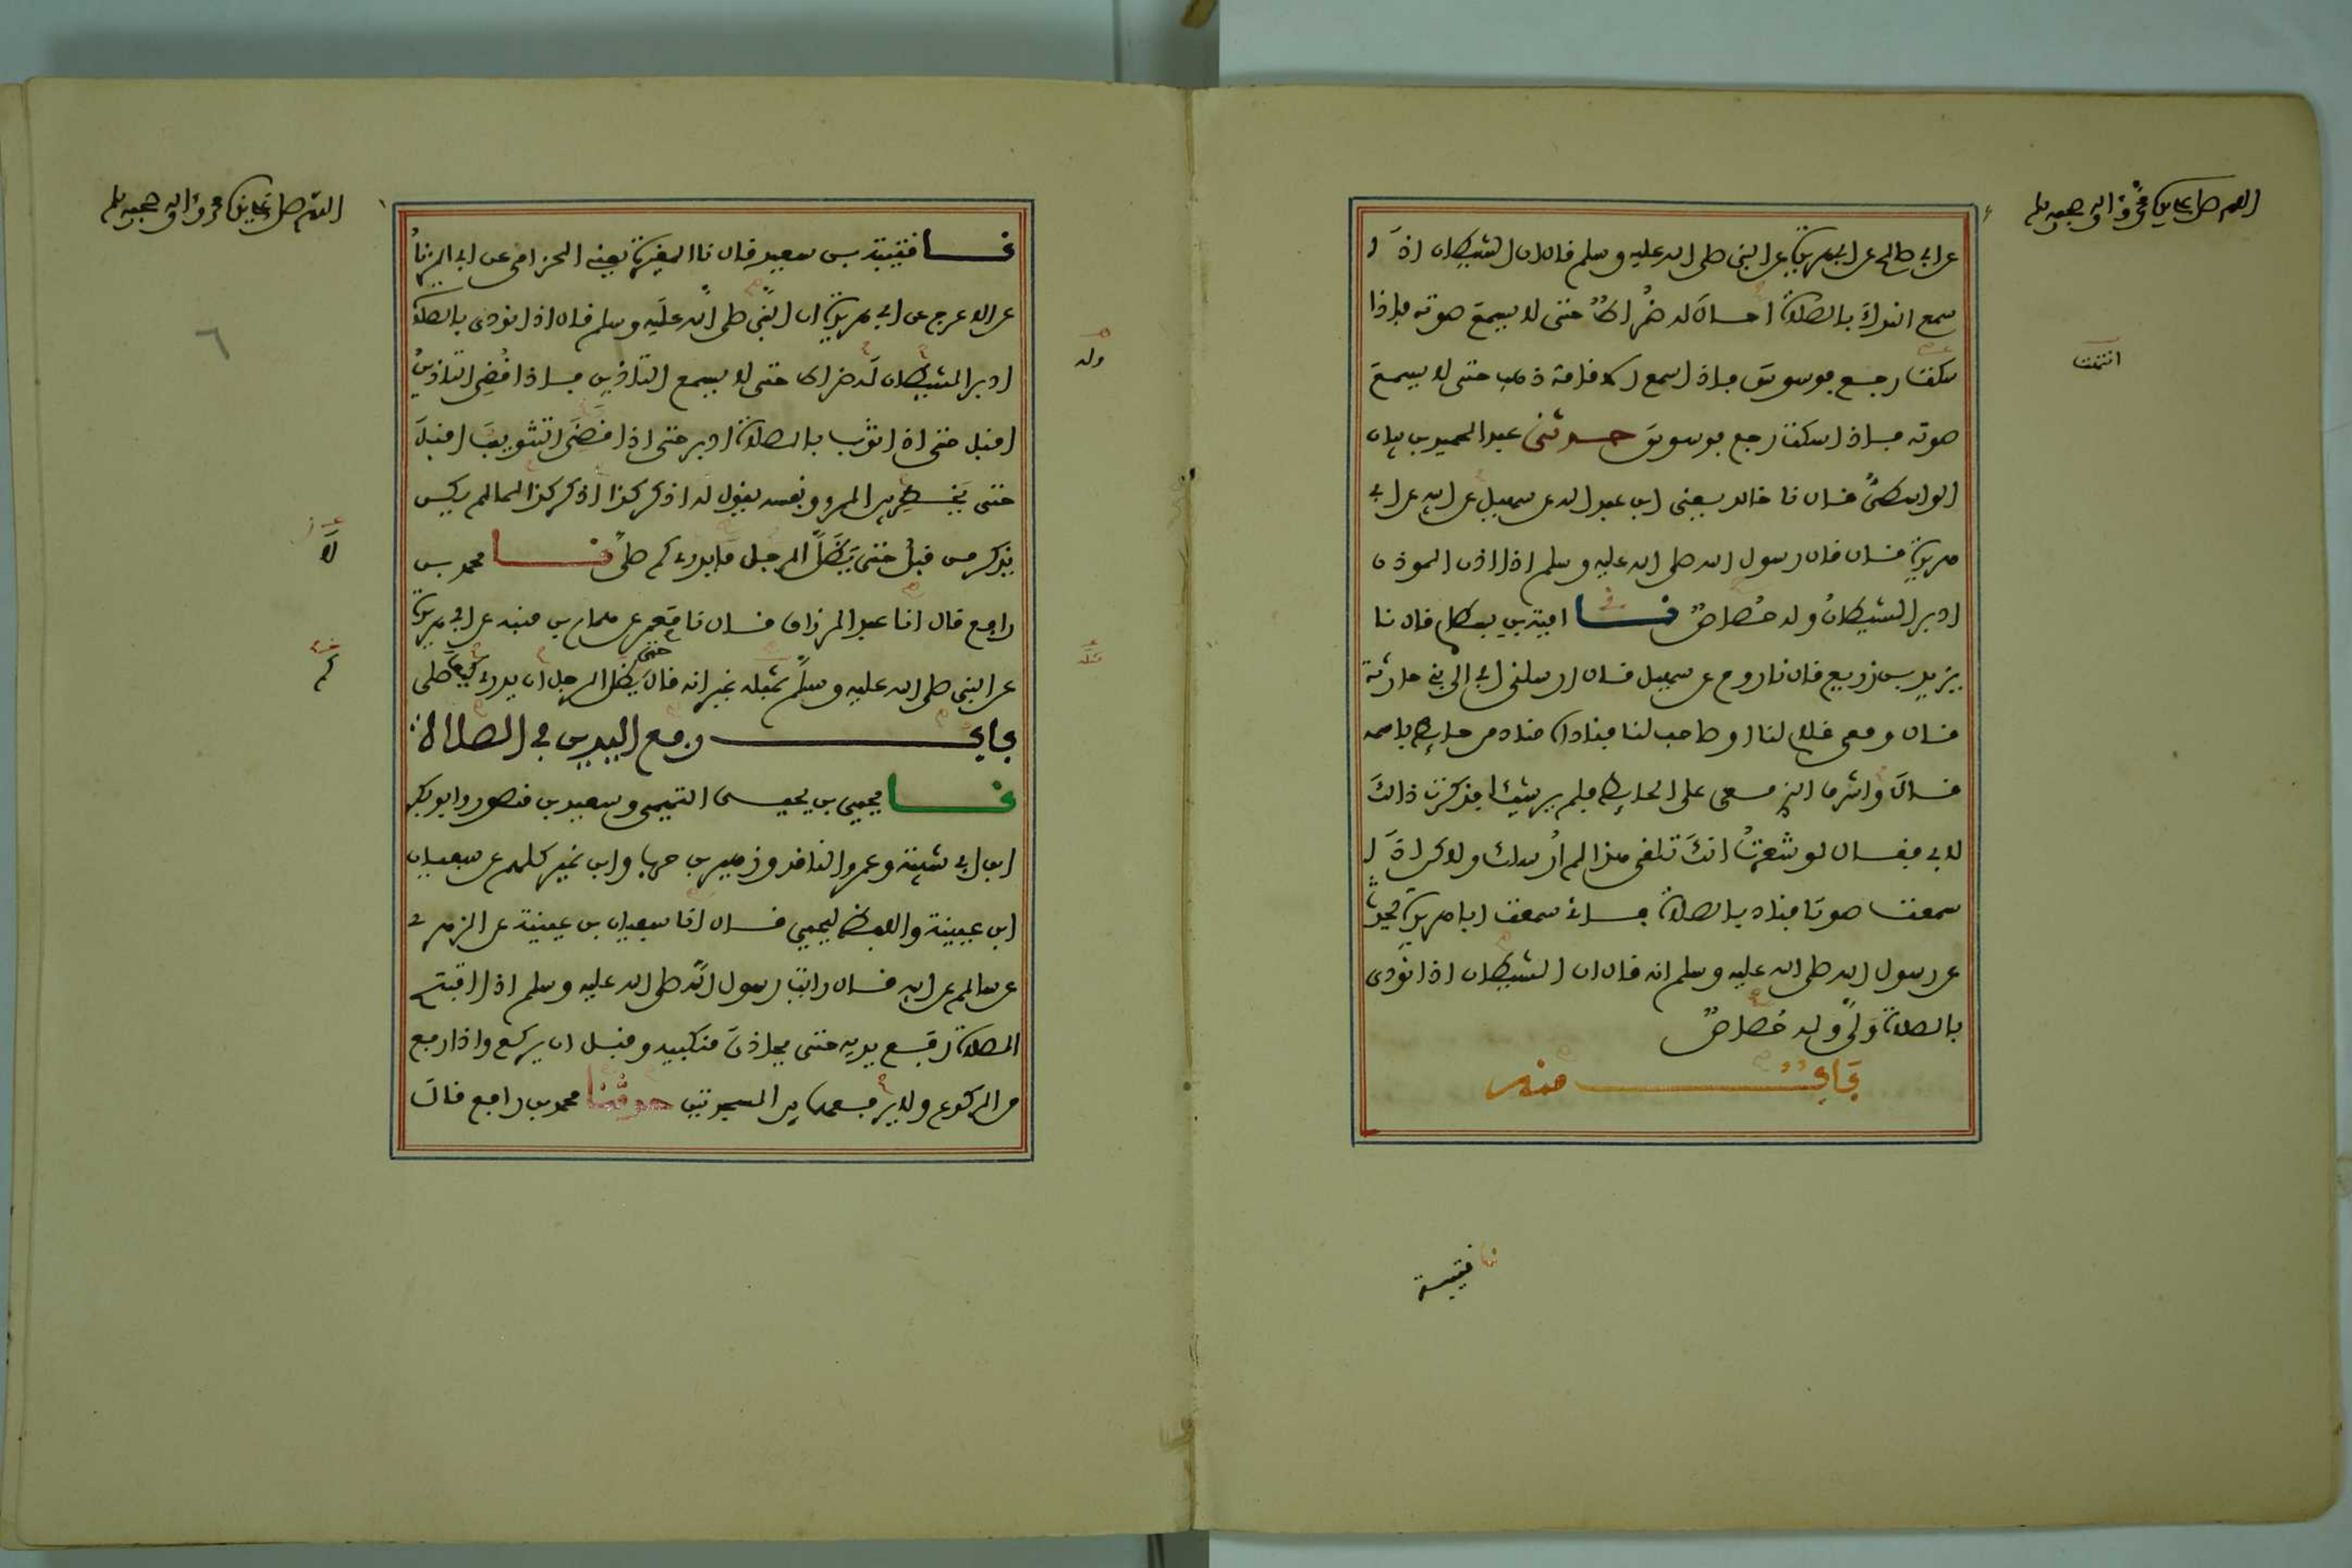 اللهم صل على سيدنا محمد وءاله وصحبه وسلم
عن ابي صالح عن ابي هريرة عن النبي صلى الله عليه وسلم قال ان الشيطان اذا
سمع النداء بالصلاة احال له ضراط حتى لا يسمع صوته فإذا
سكت رجع فوسوس فإذا سمع الاقامة ذهب حتى لا يسمع
انتهت
صوته فإذا سكت رجع فوسوس حدثني عبد الحميد بن بيان
الواسطي قال نا خالد يعني ابن عبد الله عن سهيل عن ابيه عن ابي
هريرة قال قال رسول الله صلى الله عليه وسلم اذا اذن الموذن
ادبر الشيطان وله حصاص نا امية بن بسطام قال نا
يزيد بن زريع قال نا روح عن سهيل قال ارسلني ابي الى بني حارثة
قال ومعي غلام لنا او صاحب لنا فناداه مناد من حايط باسمه
قال واشرف الذي معي على الحايط فلم ير شيئا فذكرت ذالك
لابي فقال لو شعرت انك تلقى هذا لم ارسلك ولاكن اذا
سمعت صوتا فناد بالصلاة فإني سمعت ابا هريرة يحدث
عن رسول الله صلى الله عليه وسلم انه قال ان الشيطان اذا نودي
بالصلاة ولى وله حصاص
باب منه
نا قتيبة
اللهم صل على سيدنا محمد وءاله وصحبه وسلم
نا قتيبة بن سعيد قال نا المغيرة يعني الحزامي عن ابي الزناد
عن الاعرج عن ابي هريرة ان النبي صلى الله عليه وسلم قال اذا نودي بالصلاة
ادبر الشيطان له ضراط حتى لا يسمع التاذين فإذا قضي التاذين
وله
اقبل حتى اذا ثوب بالصلاة ادبر حتى اذا قضى التثويب اقبل
حتى يخطر بين المرء ونفسه يقول له اذكر كذا اذكر كذا لما لم يكن
يذكر من قبل حتى يظل الرجل ما يدري كم صلى نا محمد بن
لا
رافع قال انا عبد الرزاق قال نا معمر عن همام بن منبه عن ابي هريرة
عن النبي صلى الله عليه وسلم بمثله غير انه قال حتى يظل الرجل ان يدري كيف صلى
مثله
كم
باب رفع اليدين في الصلاة
نا يحيى بن يحيى التميمي وسعيد بن منصور وابو بكر
ابن ابي شيبة وعمرو الناقد وزهير بن حرب وابن نمير كلهم عن سفيان
ابن عيينة واللفظ ليحيى قال انا سفيان بن عيينة عن الزهري
عن سالم عن ابيه قال رايت رسول الله صلى الله عليه وسلم اذا افتتح
الصلاة رفع يديه حتى يحاذي منكبيه وقبل ان يركع واذا رفع
من الركوع ولا يرفعهما بين السجدتين حدثنا محمد بن رافع قال
٦